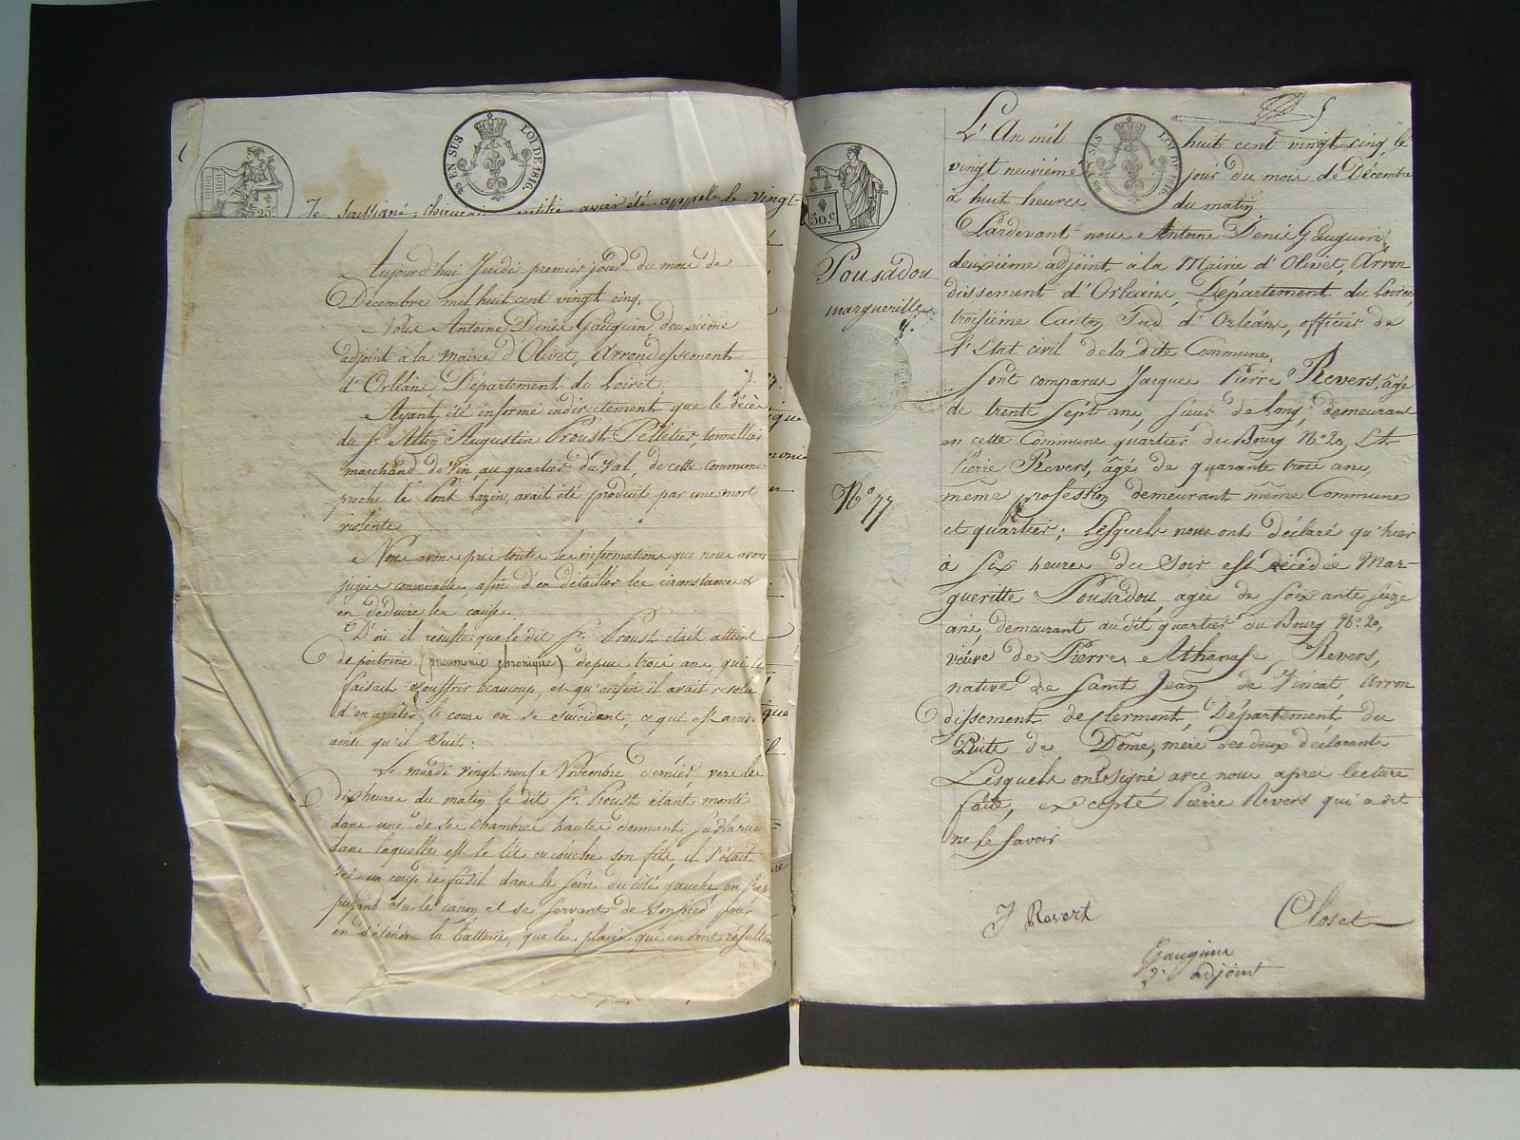 EN SUS
LOI DE 1816
25 c
Je soussigné, chirurgien certifie avoir été appelé le vingt-
Aujourd'hui Jeudi premier jour du mois de
Décembre mil huit cent vingt cinq,
Nous Antoine Denis Gauguin deuxième
adjoint à la mairie d'Olivet, Arrondissement
d'Orléans Département du Loiret
Ayant été informé indirectement que le décès
du Sr. Augustin Proust Pelletier tonnelier
marchand de vin, au quartier du Val, de cette commune
proche le Pont bazin, avait été produit par une mort
violente
Nous avons pris toutes les informations que nous avons
jugées convenables afin d'en détailler les circonstances et
en déduire les causes.
D'où il résulte que le dit Sr. Proust était atteint
de poitrine (pneumonie chronique) depuis trois ans, qui le
faisait souffrir beaucoup, et qu'enfin il avait résolu
d'en arrêter le cours en se suicidant, ce qui est arrivé
ainsi qu'il suit:
Le mardi vingt neuf Novembre dernier vers les
dix heures du matin le dit Sr. Proust étant monté
dans une de ses chambres hautes donnant sur la rue
dans laquelle est le lit où couche son fils, il s'était
tiré un coup de fusil dans le sein du côté gauche, en s'ap
puyant sur le canon et se servant de son pied pour
en détendre la batterie, que les plaies qui en sont résultées
30 c
Pousadou
margueritte
No. 77
EN SUS
LOI DE 1816
L'An mil huit cent vingt cinq, le
vingt neuvième jour du mois de Décembre
à huit heures du matin
Pardevant nous Antoine Denis Gauguin,
deuxième adjoint à la Mairie d'Olivet, Arron
dissement d'Orléans, Département du Loiret,
troisième Canton Sud d'Orléans, officier de
l'Etat civil de la dite Commune,
Sont comparus Jacques Pierre Revers, âgé
de trente sept ans, sieur de long, demeurant
en cette Commune, quartier du Bourg No. 20, Et
Pierre Revers, âgé de quarante trois ans,
même profession demeurant même Commune
et quartier; Lesquels nous ont déclaré qu'hier
à six heures du soir est décédée Mar-
gueritte Pousadou, agée de soixante seize
ans, demeurant au dit quartier du Bourg No. 20,
veuve de Pierre Athanase Revers,
native de Saint Jean de Vincat, Arron
dissement de Clermont, Département du
Puits de Dôme, mère des deux déclarants
Lesquels ont signé avec nous après lecture
faite, excepté Pierre Revers qui a dit
ne le savoir
J Revert
Closet
Gauguin
2e. adjoint